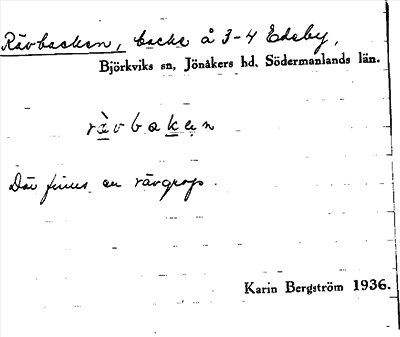 Rävbacken, backe å 3-4 Edeby,
Björkviks sn, Jönåkers hd, Södermanlands län.
rä̀vbakęn
Där finns en rävgrop.
Karin Bergström 1936.